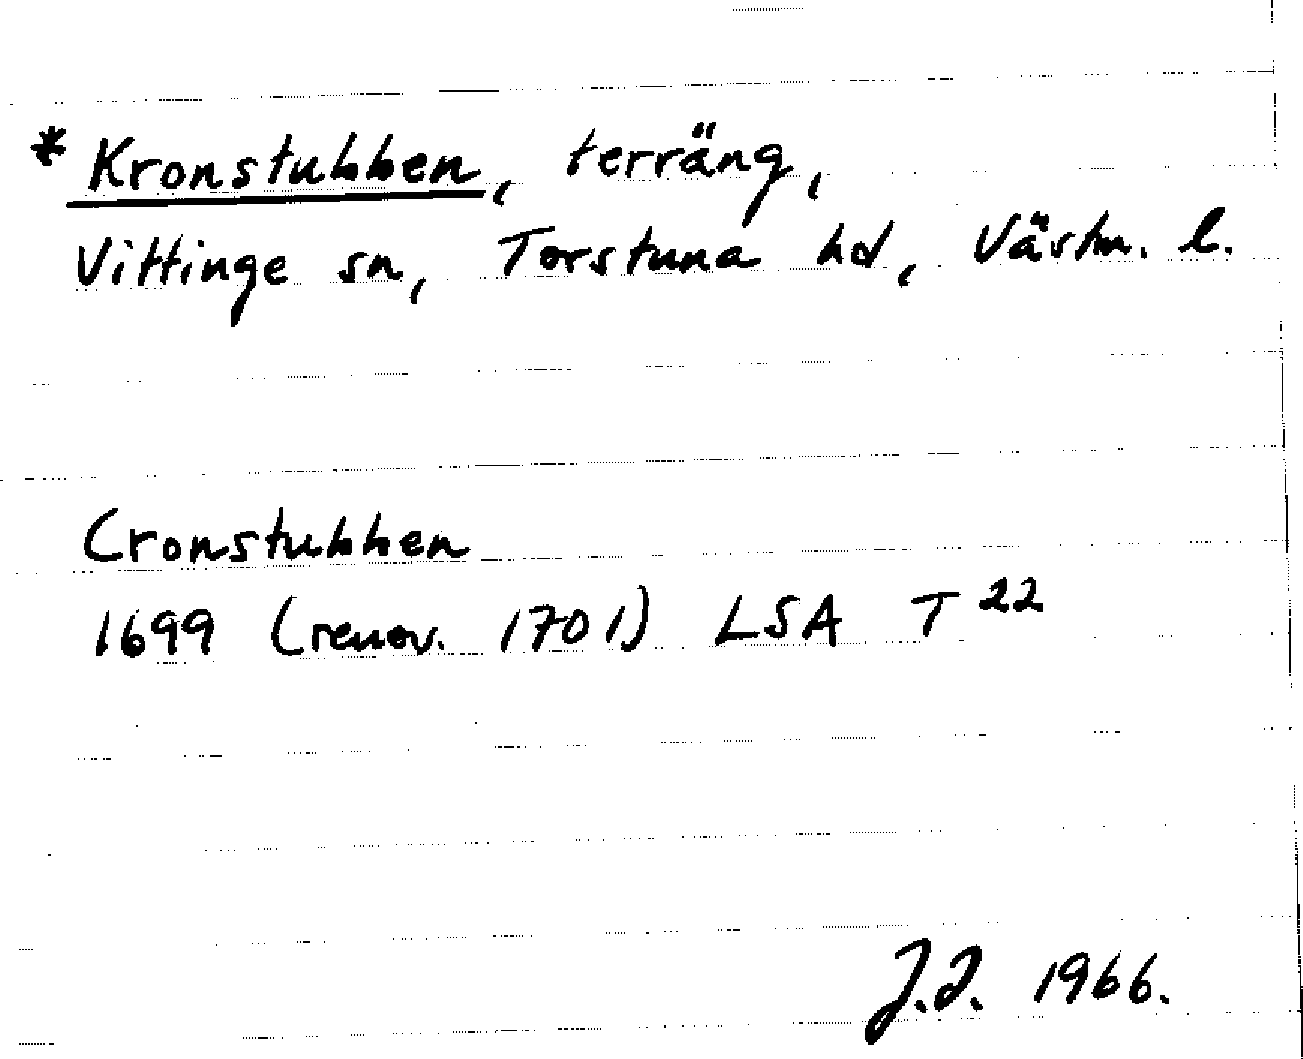 * Kronstubben, terräng,
Vittinge sn, Torstuna hd, Västm. l.
Cronstubben
1699 (renov. 1701) LSA T 22
J.J. 1966.